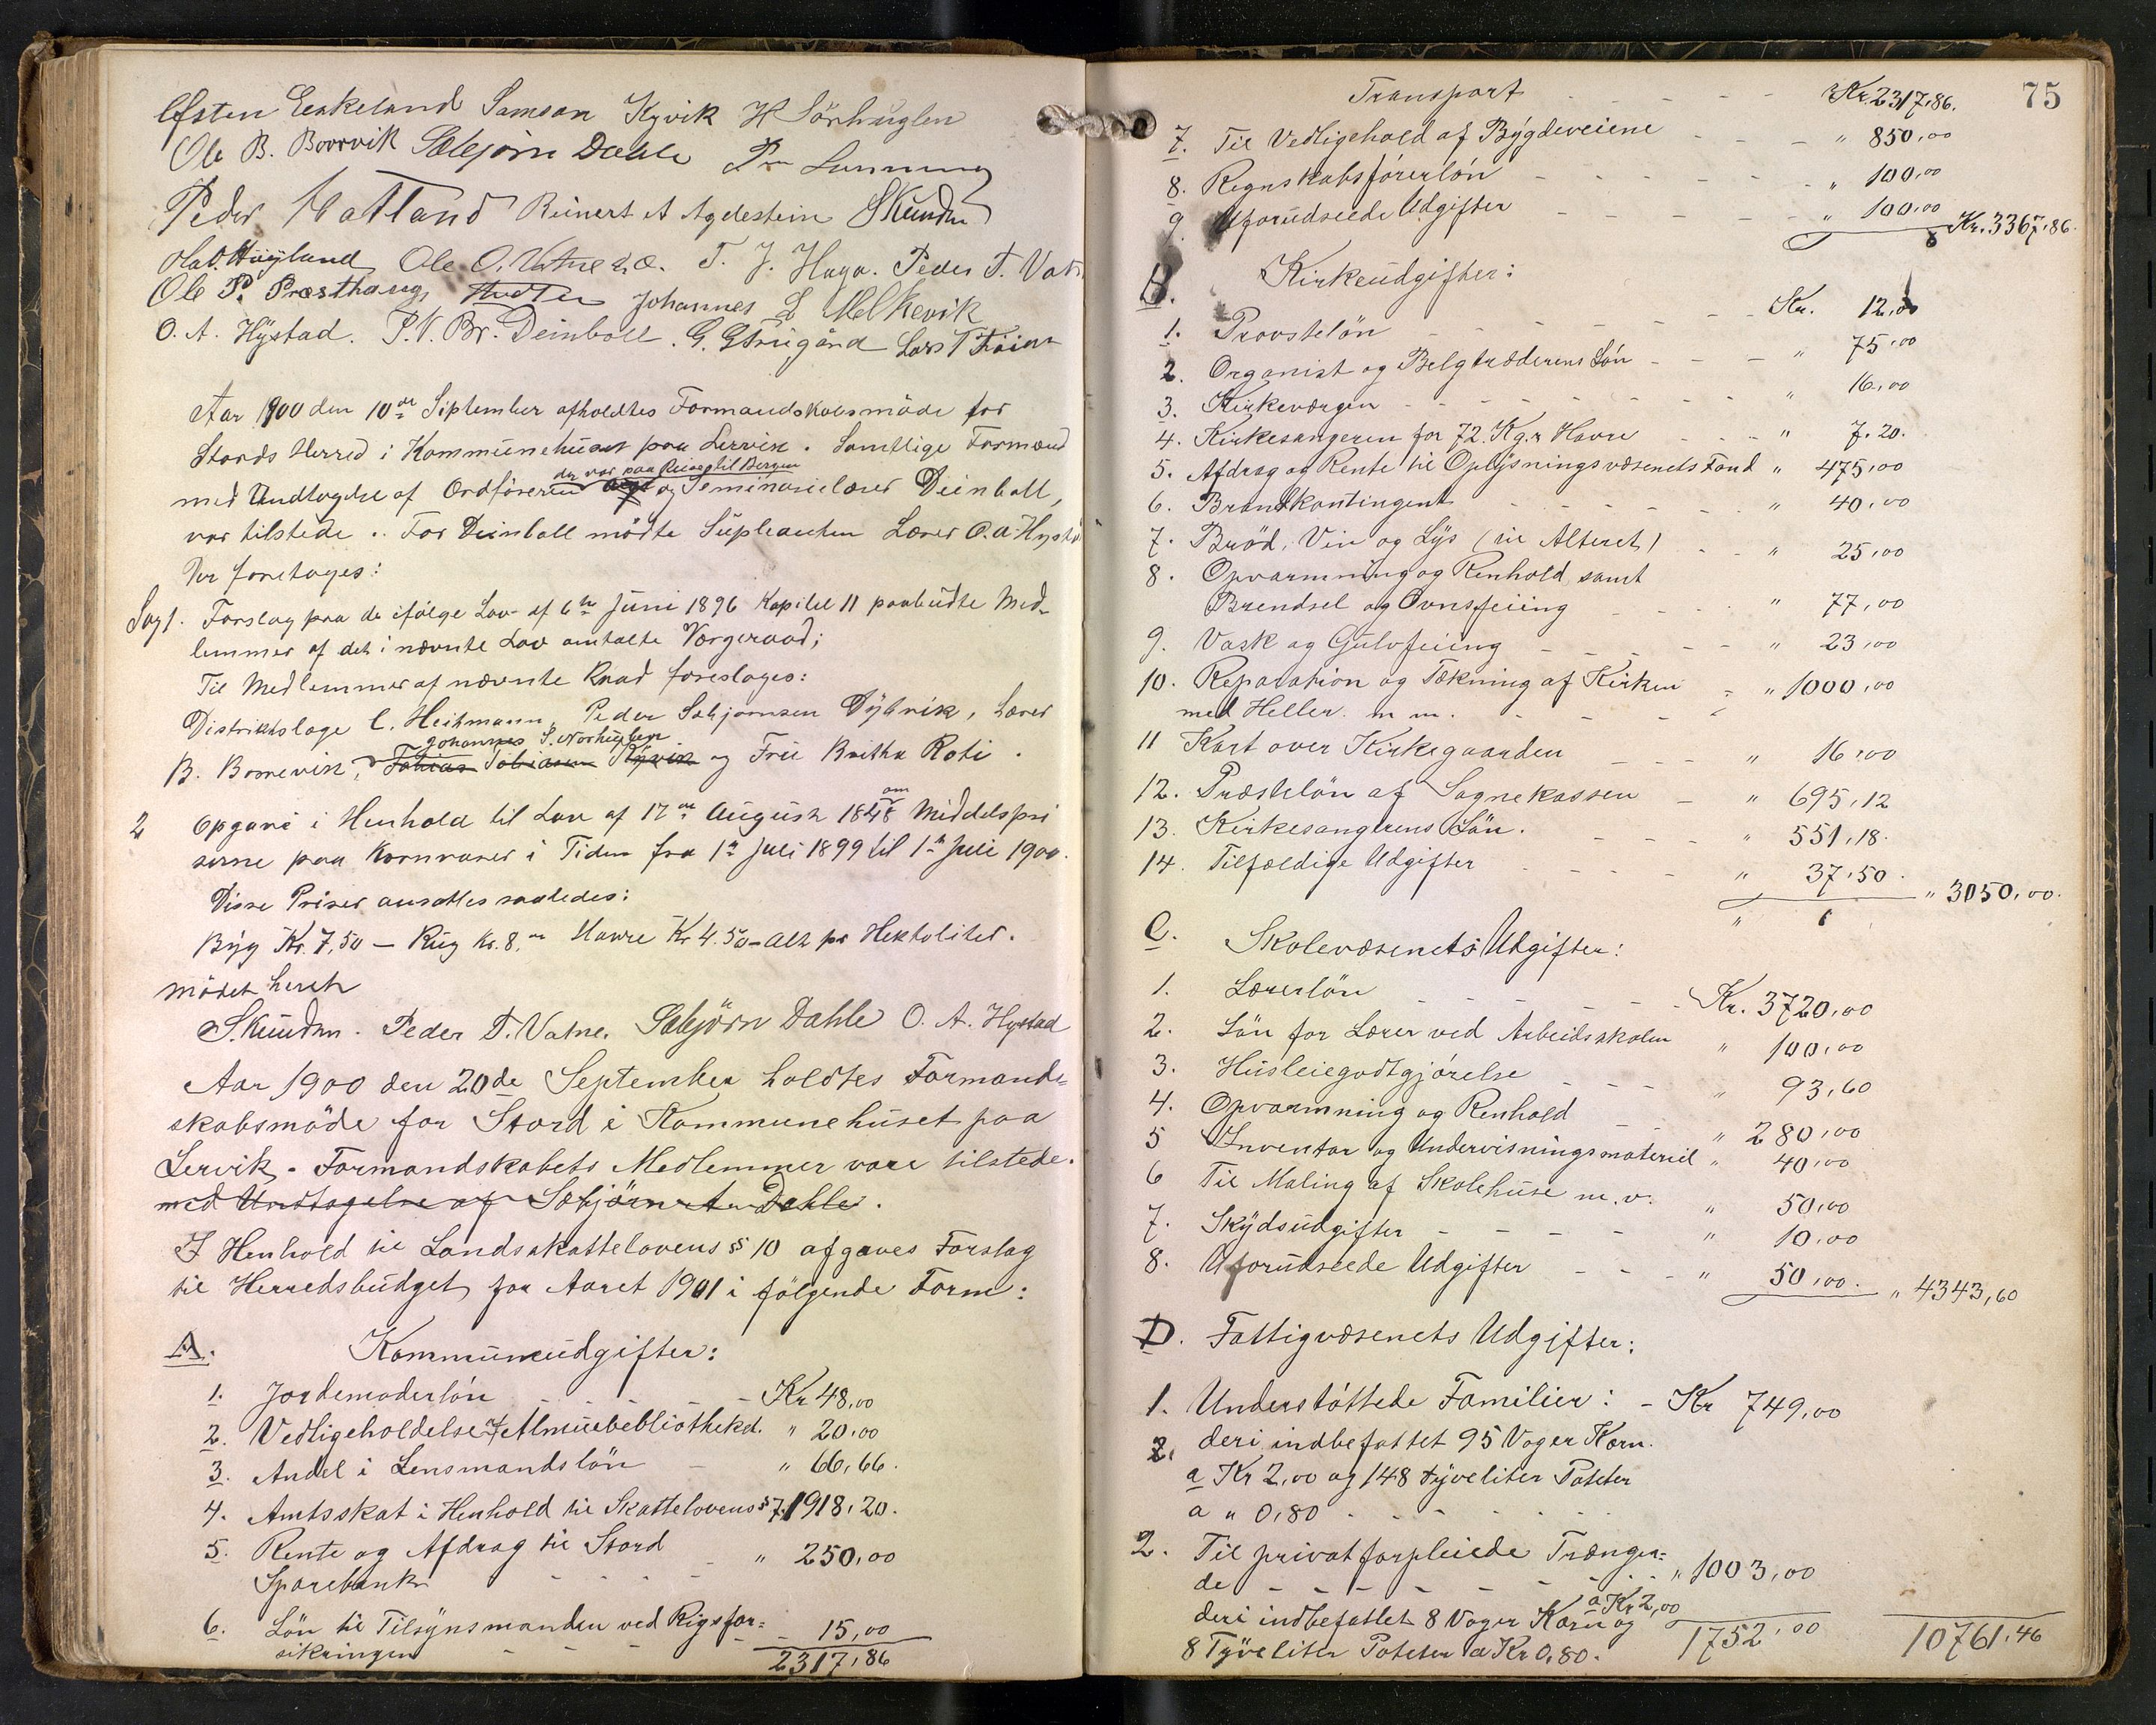 Østen Eskeland Samson Kyvik H Sørhuglen
Ole B. Boorvik Sæbjørn Dahle
Peder Hatland Reinert A Agdestein SKundsen
Ole O. Vatne T. J. Haga. Peder T. Vatne
Ole P. Præsthaug, Johannes L Melkevik
O. A. Hystad. P. V. Br. Deinboll. G. Lars T
Aar 1900 den 10de September afholdtes Formandskabsmöde for
Stords Herred i Kommunehuset paa Lervik. Samtlige Formænd
der var paa Reise til Bergen
med Undtagelse af Ordföreren og Seminarielærer Deinboll,
var tilstede. For Deinboll mödte Supleanten Lærer O. A. Hystad
Der foretoges:
Sag 1. Forslag paa de ifölge Lov af 6te Juni 1896 Kapitel 11 paabudte Med-
lemmer af det i nævnte Lov omtalte Værgeraad;
Til Medlemmer af nævnte Raad foresloges:
Distriktslæge C. Heitmann, Peder Sæbjörnsen Dybvik, Lærer
Johannes S. Nordhuglen
B. Borrevik, Tobias Tobiasen og Frü Britha Roti.
om
2 Opgave i Henhold til Lov af 17de August 1848 Middelspri
serne paa Kornvarer i Tiden fra 1ste Juli 1899 til 1ste Juli 1900.
Disse Priser ansattes saaledes:
Byg Kr. 7,50 – Rug Kr. 8, " Havre Kr 4.50 – Alt pr Hektoliter.
Mödet hævet
S. Kundsen. Peder T. Vatne. Sæbjörn Dahle O. A. Hystad
Aar 1900 den 20de September holdtes Formand-
skabsmöde for Stord i Kommunehüset paa
Lervik. Formandskabets Medlemmer vare tilstede.
med Undtagelse af Sæbjörn A. Dahle.
I Henhold til Landsskattelovens § 10 afgaves Forslag
til Herredsbüdget for Aaret 1901 i fölgende Form:
A. Kommuneudgifter:
1. Jordemoderlön - - - - Kr 48,00
2. Vedligeholdelse af Almuebibliotheket. " 20,00
3. Andel i Lensmandslön - " 66,66.
4. Amtsskat i Henhold til Skattelovens § 7. 1918,20.
5. Rente og Afdrag til Stord
Sparebank - - - - " 250,00
6. Lön til Tilsynsmanden ved Rigsfor=
sikringen - - - 15,00
2317,86
75
Transport - - - - - Kr. 2317,86.
7. Til Vedligehold af Bygdeveiene - - - " 850,00
8. Regnskabsförerlön - - - - - " 100,00
9. Uforudseede Udgifter - - - - - " 100,00
Kr. 3367,86.
B. Kirkeudgifter:
1. Provstelön - - - - - Kr. 12,00
2. Organist og Belgtræderens Lön - - - " 75,00
3. Kirkeværgen - - - - - " 16,00
4. Kirkesangeren for 72 Kg.r Havre - - " 7.20.
5. Afdrag og Rente til Oplysningsvæsenets Fond " 475,00
6. Brandkontingent - - - - - " 40,00
7. Bröd, Vin og Lys (til Alteret) - - " 25,00
8. Opvarmning og Renhold samt
Brendsel og Ovnsfeiing - - - " 77,00
9. Vask og Gulvfeiing - - - - " 23,00
10. Reparation og Tækning af Kirken - " 1000,00
med Heller m m. - - - -
11 Kart over Kirkegaarden - - - " 16,00
12. Præstelön af Sognekassen - " 695,12
13. Kirkesangerens Lön. - - - " 551,18.
14. Tilfældige Udgifter - - - - " 37,50.
" 3050,00.
C. Skolevæsenets Udgifter:
1. Lærerlön - - - - - Kr. 3720,00
2. Lön for Lærer ved Arbeidsskolen " 100,00
3. Husleiegodtgjörelse - - - " 93,60
4. Opvarmning og Renhold - - " 280,00
5 Inventar og Undervisningsmateriel " 40,00
6 Til Maling af Skolehüse m. v. " 50,00
7. Skydsudgifter - - - - " 10,00
8. Uforudseede Udgifter - - - " 50,00. " 4343,60
D. Fattigvæsenets Udgifter:
1. Understöttede Familier: - Kr 749,00
2. deri indbefattet 95 Voger Korn.
a Kr 2,00 og 148 tyveliter Poteter
a " 0,80 - - - - -
2. Til privat forpleiede Trængen=
de - - - - - - " 1003,00
a Kr 2,00
deri indbefattet 8 Voger Korn og
8 Tyveliter Poteter a Kr 0,80.
1752,00 10761,46